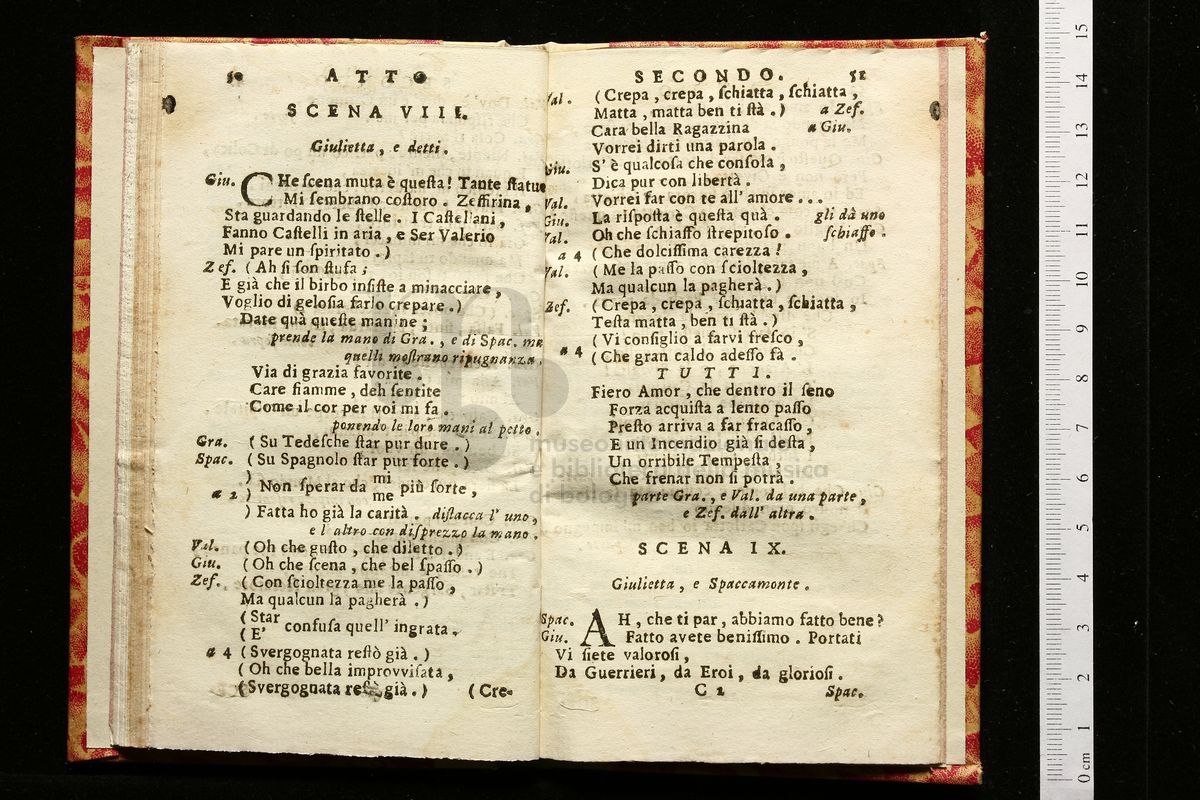 50 ATTO
SCENA VIII.
Giulietta, e detti.
Giu. CHe ſcena muta è queſta! Tante ſtatue
Mi ſembrano coſtoro. Zeffirina,
Sta guardando le ſtelle. I Caſtellani,
Fanno Caſtelli in aria, e Ser Valerio
Mi pare un ſpiritato.)
Zef. (Ah ſi ſon ſtufa;
E già che il birbo inſiſte a minacciare,
Voglio di geloſia farlo crepare.)
Date quà queſte manine;
prende la mano di Gra., e di Spac. ma
quelli moſtrano ripugnanza.
Via di grazia favorite.
Care fiamme, deh ſentite
Come il cor per voi mi fa.
ponendo le loro mani al petto.
Gra. (Su Tedeſche ſtar pur dure.)
Spac. (Su Spagnolo ſtar pur forte.)
a 2 ) Non ſperar da mi me più ſorte,
) Fatta ho già la carità. diſtacca l' uno,
e l' altro con diſprezzo la mano.
Val. (Oh che guſto, che diletto.)
Giu. (Oh che ſcena, che bel ſpaſſo.)
Zef. (Con ſcioltezza me la paſſo,
Ma qualcun la pagherà.)
(Star
(E' confuſa quell' ingrata.
a 4 (Svergognata reſtò già.)
(Oh che bella improvviſata,
(Svergognata reſtò già.) (Cre-
SECONDO. 51
Val. (Crepa, crepa, ſchiatta, ſchiatta,
Matta, matta ben ti ſtà.) a Zef.
Cara bella Ragazzina a Giu.
Vorrei dirti una parola.
Giu. S' è qualcoſa che conſola,
Dica pur con libertà.
Val. Vorrei far con te all' amore...
Giu. La riſpoſta è queſta quà. gli dà uno
Val. Oh che ſchiaffo ſtrepitoſo. ſchiaffo.
a 4 (Che dolciſſima carezza!
Val. (Me la paſſo con ſcioltezza,
Ma qualcun la pagherà.)
Zef. (Crepa, crepa, ſchiatta, ſchiatta,
Teſta matta, ben ti ſtà.)
a 4 (Vi conſiglio a farvi freſco,
(Che gran caldo adeſſo fà.
TUTTI.
Fiero Amor, che dentro il ſeno
Forza acquiſta a lento paſſo
Preſto arriva a far fracaſſo,
E un Incendio già ſi deſta,
Un orribile Tempeſta,
Che frenar non ſi potrà.
parte Gra., e Val. da una parte,
e Zef. dall' altra.
SCENA IX.
Giulietta, e Spaccamonte.
Spac. AH, che ti par, abbiamo fatto bene?
Giu. Fatto avete beniſſimo. Portati
Vi ſiete valoroſi,
Da Guerrieri, da Eroi, da glorioſi.
C 2 Spac.
museo
e biblioteca della musica
di bologna
0 cm 1 2 3 4 5 6 7 8 9 10 11 12 13 14 15